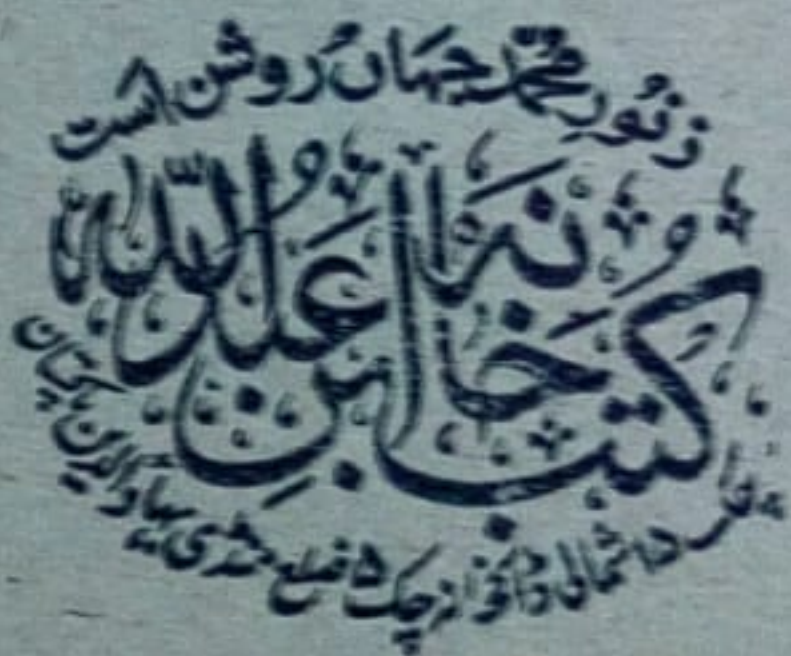 ز نُورِ مُحَمَّد جہاں رُوشن است
کُتب خانہ ابنِ عبدُ اللہ
شمالی ڈاکخانہ چک ۵ ضلع منڈی بہاؤالدین